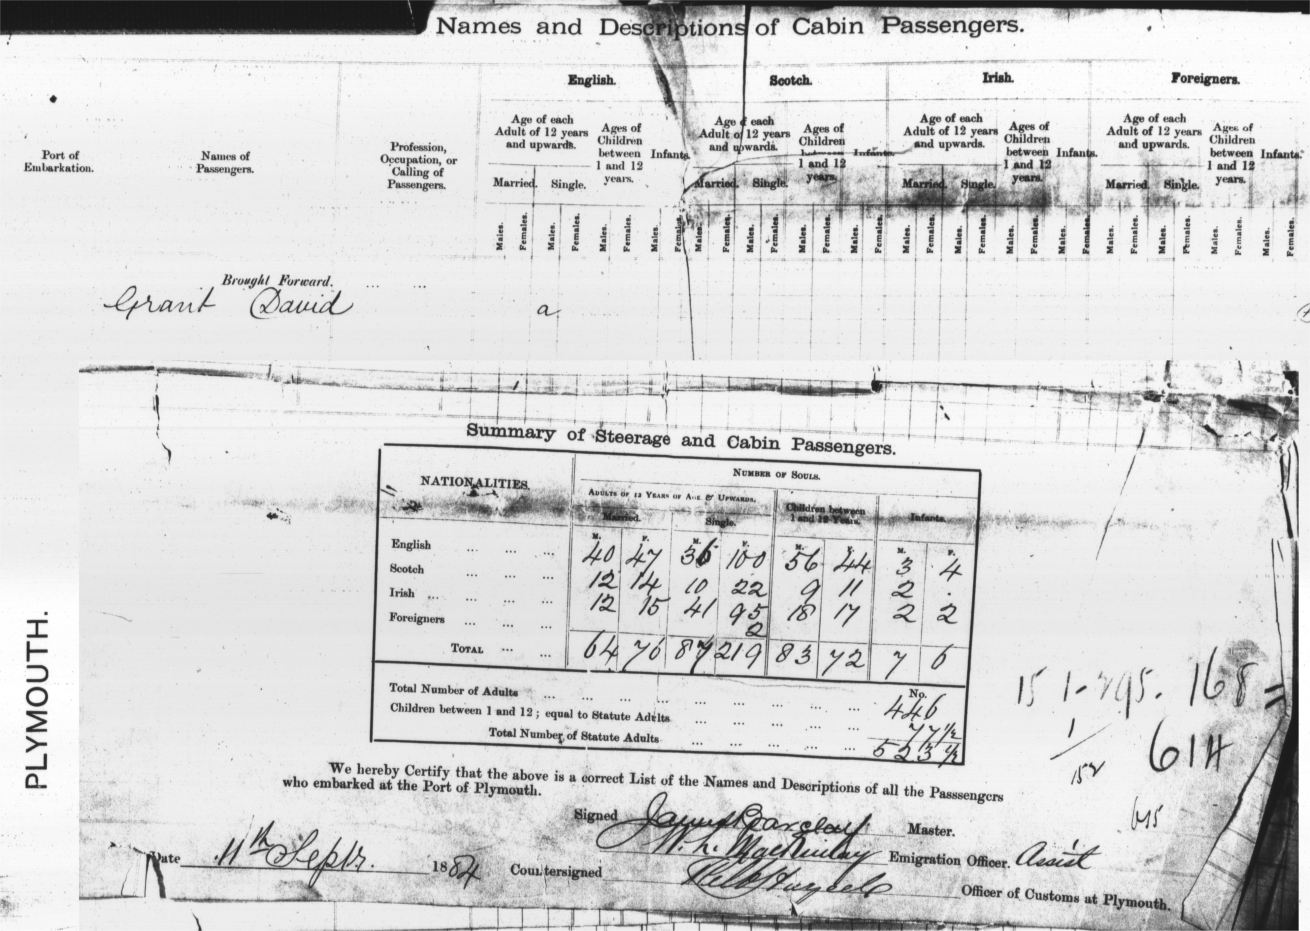 Names and Descriptions of Cabin Passengers.
English. Scotch. Irish. Foreigners.
Port of Embarkation. Names of Passengers. Profession, Occupation, or Calling of Passengers.
Age of each Adult of 12 years and upwards. Ages of Children between 1 and 12 years. Infants. Age of each Adult of 12 years and upwards. Ages of Children between 1 and 12 years. Infants. Age of each Adult of 12 years and upwards. Ages of Children between 1 and 12 years. Infants. Age of each Adult of 12 years and upwards. Ages of Children between 1 and 12 years. Infants.
Married. Single. Married. Single. Married. Single. Married. Single.
Males. Females. Males. Females. Males. Females. Males. Females. Males. Females. Males. Females. Males. Females. Males. Females. Males. Females. Males. Females. Males. Females. Males. Females. Males. Females. Males. Females. Males. Females. Males. Females.
Brought Forward. ... ...
Grant David a
Summary of Steerage and Cabin Passengers.
NATIONALITIES. NUMBER OF SOULS.
ADULTS OF 12 YEARS OF AGE & UPWARDS. Children between 1 and 12 Years. Infants.
Married. Single.
M. F. M. F. M. F. M. F.
English ... ... ... 40 47 36 100 56 44 3 4
Scotch ... ... ... 12 14 10 22 9 11 2 .
Irish ... ... ... 12 15 41 95 18 17 2 2
Foreigners ... ... ... 2
TOTAL ... ... 64 76 87 219 83 72 7 6
No.
Total Number of Adults ... ... ... ... ... ... ... 446
Children between 1 and 12; equal to Statute Adults ... ... ... ... 77½
Total Number of Statute Adults ... ... ... ... 523½
168
614
615
We hereby Certify that the above is a correct List of the Names and Descriptions of all the Passengers
who embarked at the Port of Plymouth.
Signed James Barclay Master.
Emigration Officer. Assist
Date 11th Septr. 1884 Countersigned
Officer of Customs at Plymouth.
PLYMOUTH.